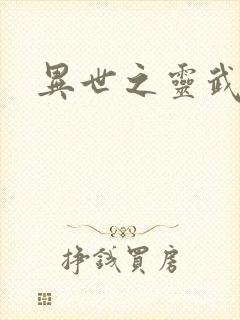 異世之靈武
掙錢買房